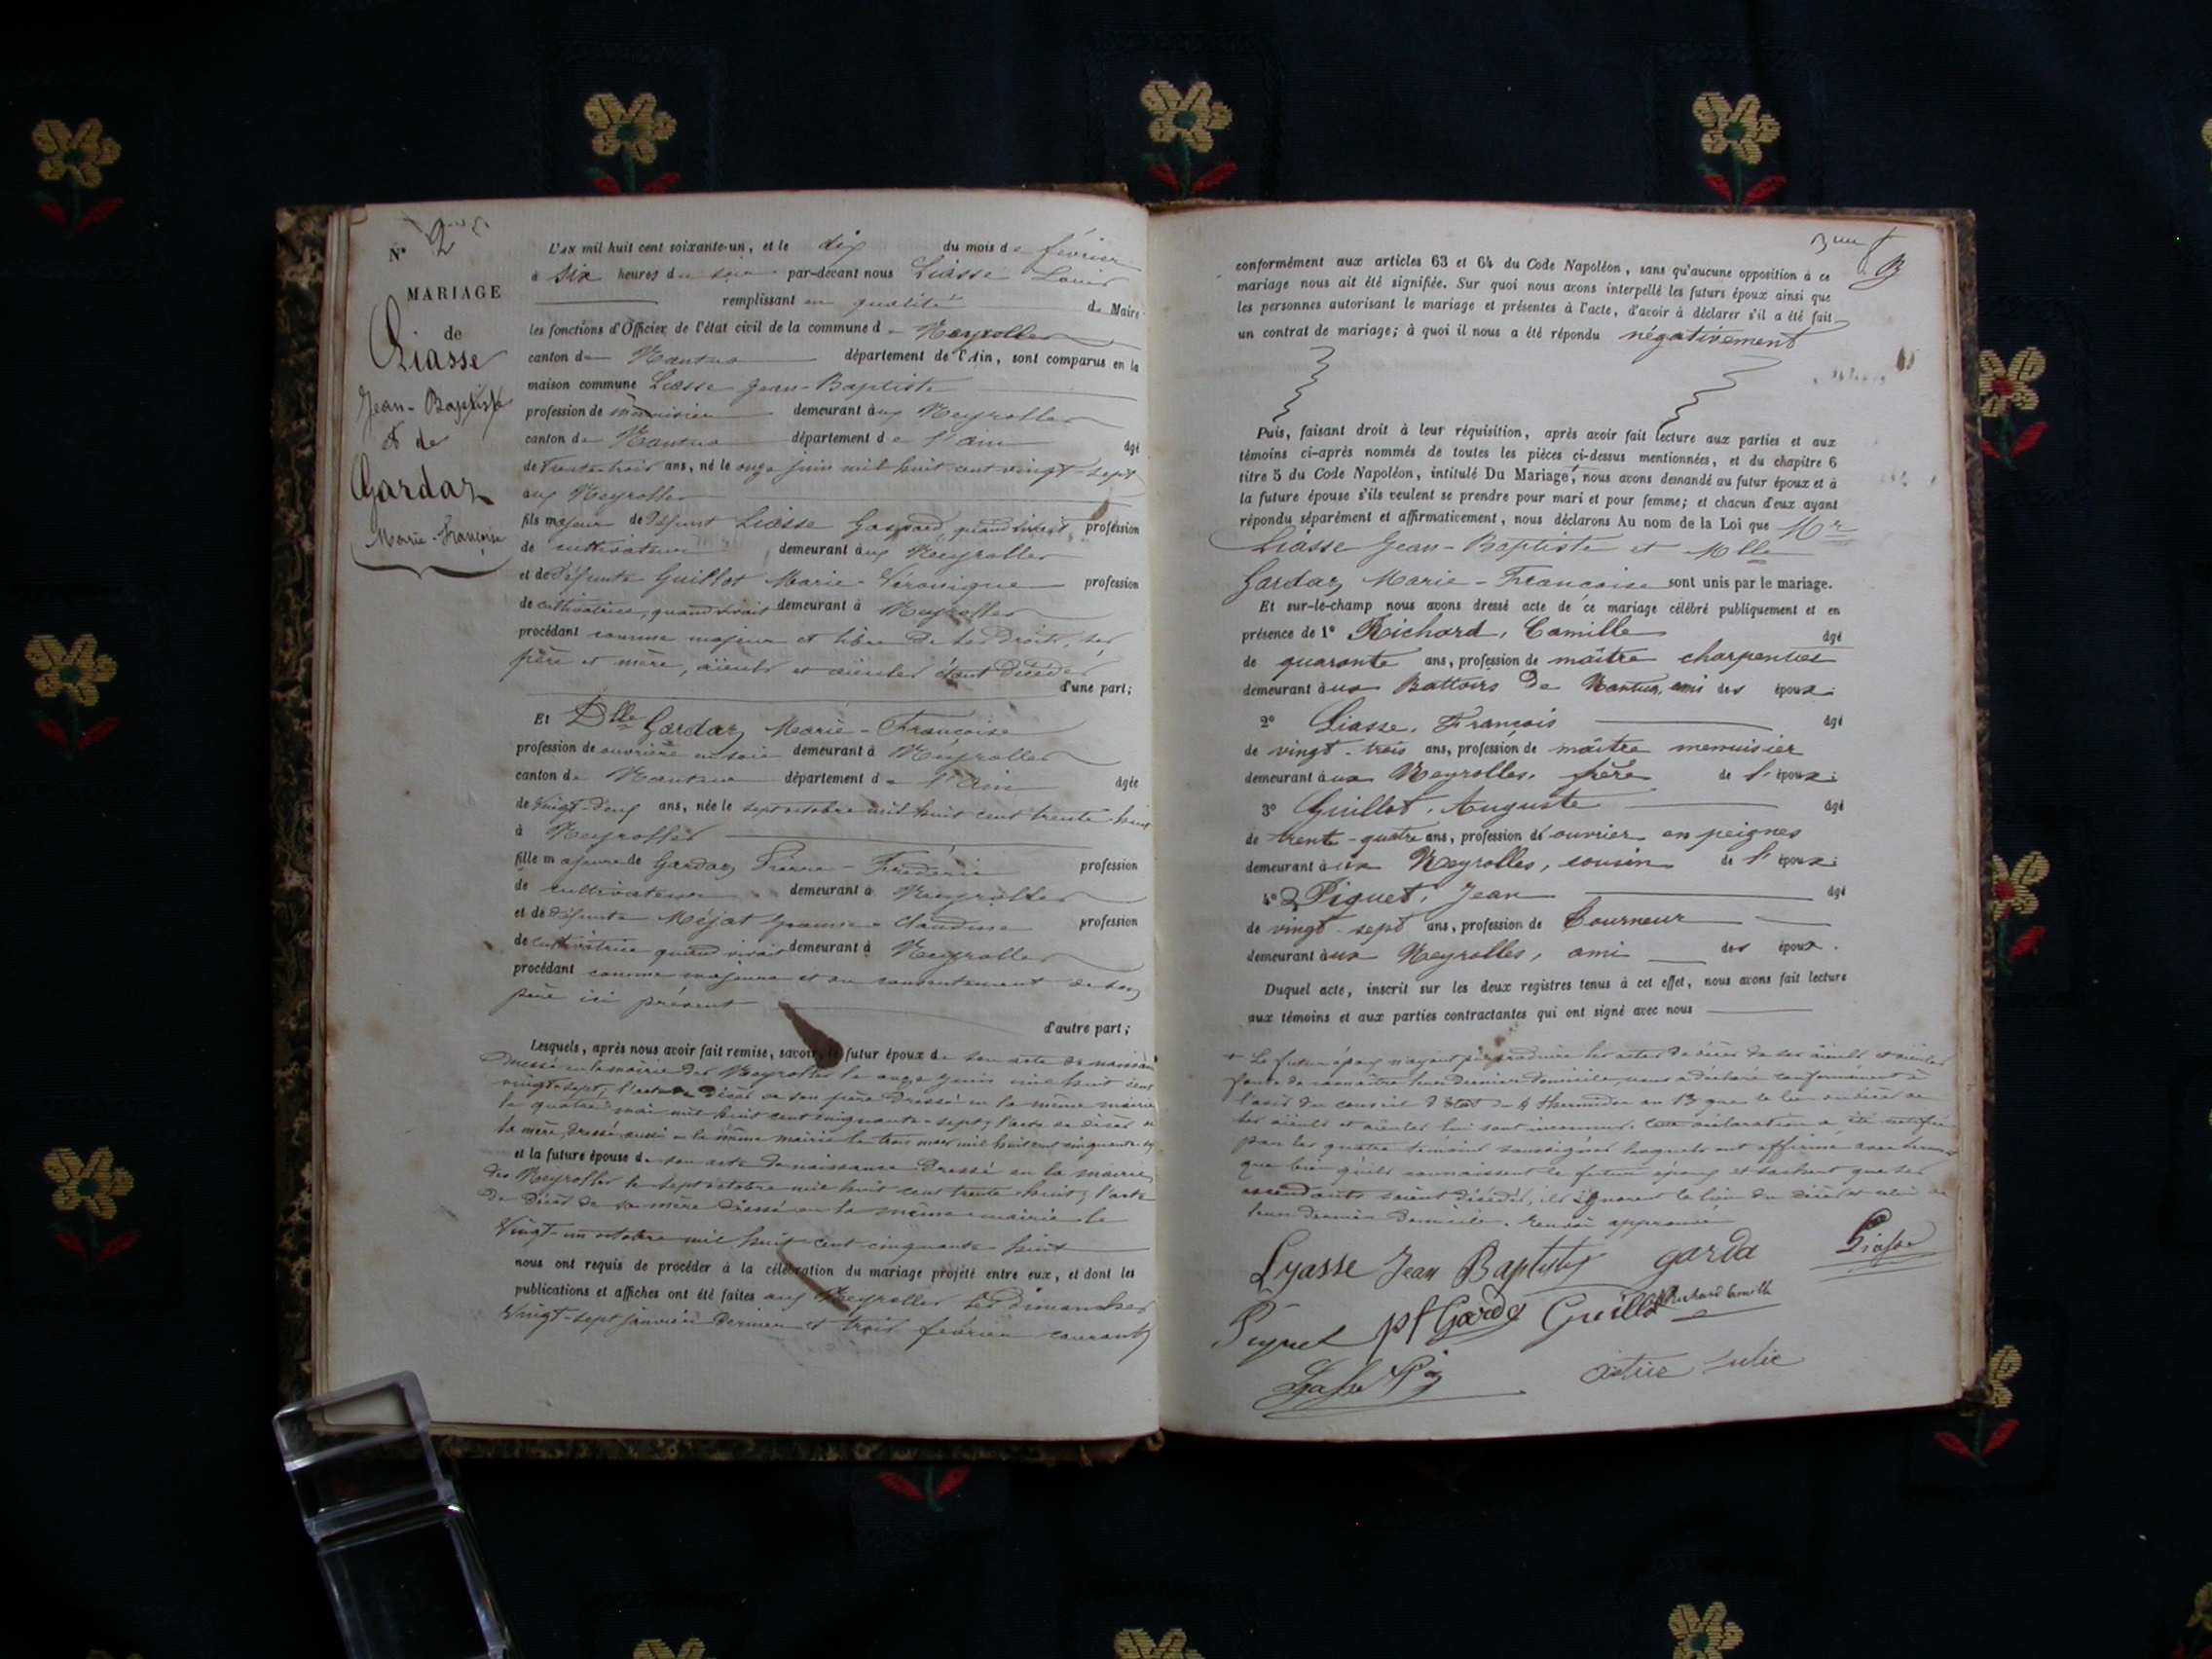 N° 2
MARIAGE
de
Liasse
Jean-Baptiste
& de
Gardaz
Marie-Françoise
L'AN mil huit cent soixante-un, et le dix du mois de février
à six heures du soir par-devant nous Liasse Louis
remplissant en qualité de Maire
les fonctions d'Officier de l'état civil de la commune d Neyrolles
canton de Nantua département de l'Ain, sont comparus en la
maison commune Liasse Jean-Baptiste
profession de menuisier demeurant aux Neyrolles
canton de Nantua département de l'ain âgé
de trente-trois ans, né le onze juin mil huit cent vingt-sept
aux Neyrolles
fils majeur de défunt Liasse Gaspard, quand vivait, profession
de cultivateur demeurant aux Neyrolles
et de défunte Guillot Marie-Véronique profession
de cultivatrice, quand vivait demeurant à Neyrolles
procédant comme majeur et libre de ses droits, ses
père et mère, aïeuls et aïeules étant décédés
d'une part;
Et Dlle Gardaz Marie-Françoise
profession de ouvrière en soie demeurant à Neyrolles
canton de Nantua département de l'Ain âgée
de vingt-deux ans, née le sept octobre mil huit cent trente huit
à Neyrolles
fille majeure de Gardaz Pierre-Frédéric profession
de cultivateur demeurant à Neyrolles
et de défunte Méjat Claudine profession
de cultivatrice quand vivait demeurant à Neyrolles
procédant comme majeure et du consentement de son
père ici présent
d'autre part;
Lesquels, après nous avoir fait remise, savoir, le futur époux de son acte de naissance
dressé en la mairie des Neyrolles le onze juin mil huit cent
vingt-sept, l'acte de décès de son père dressé en la même mairie
le quatre mai mil huit cent cinquante-sept, l'acte de décès de
sa mère, dressé aussi en la même mairie le trois mars mil huit cent cinquante
et la future épouse de son acte de naissance dressé en la mairie
des Neyrolles le sept octobre mil huit cent trente-huit, l'acte
de décès de sa mère dressé en la même mairie le
vingt-un octobre mil huit cent cinquante-huit
nous ont requis de procéder à la célébration du mariage projeté entre eux, et dont les
publications et affiches ont été faites aux Neyrolles les dimanches
vingt-sept janvier dernier et trois février courant
conformément aux articles 63 et 64 du Code Napoléon, sans qu'aucune opposition à ce
mariage nous ait été signifiée. Sur quoi nous avons interpellé les futurs époux ainsi que
les personnes autorisant le mariage et présentes à l'acte, d'avoir à déclarer s'il a été fait
un contrat de mariage; à quoi il nous a été répondu négativement
Puis, faisant droit à leur réquisition, après avoir fait lecture aux parties et aux
témoins ci-après nommés de toutes les pièces ci-dessus mentionnées, et du chapitre 6
titre 5 du Code Napoléon, intitulé Du Mariage, nous avons demandé au futur époux et à
la future épouse s'ils veulent se prendre pour mari et pour femme; et chacun d'eux ayant
répondu séparément et affirmativement, nous déclarons Au nom de la Loi que Mr
Liasse Jean-Baptiste et Mlle
Gardaz Marie-Francoise sont unis par le mariage.
Et sur-le-champ nous avons dressé acte de ce mariage célébré publiquement et en
présence de 1° Richard, Camille âgé
de quarante ans, profession de maître charpentier
demeurant aux Battoirs de Nantua, ami des époux.
2° Liasse, François âgé
de vingt-trois ans, profession de maître menuisier
demeurant aux Neyrolles, frère de l'époux.
3° Guillot, Auguste âgé
de trente-quatre ans, profession de ouvrier en peignes
demeurant aux Neyrolles, cousin de l'époux.
4° Piquet, Jean âgé
de vingt-sept ans, profession de Tourneur
demeurant aux Neyrolles, ami des époux.
Duquel acte, inscrit sur les deux registres tenus à cet effet, nous avons fait lecture
aux témoins et aux parties contractantes qui ont signé avec nous
+ Le futur époux n'ayant pu produire les actes de décès de ses aïeuls et aïeules
faute de connaître leur dernier domicile, nous a déclaré conformément à
l'avis du conseil d'État du 4 thermidor an 13 que le lieu du décès de
ses aïeuls et aïeules lui sont inconnus. Cette déclaration a été certifiée
par les quatre témoins soussignés lesquels ont affirmé avec serment
que bien qu'ils connaissent le futur époux et sachent que ses
ascendants soient décédés, ils ignorent le lieu du décès et celui de
leur dernier domicile. Renvoi approuvé
Lyasse Jean Baptiste garda Liasse
Piquet pf Garda Guillot Richard Camille
Julie